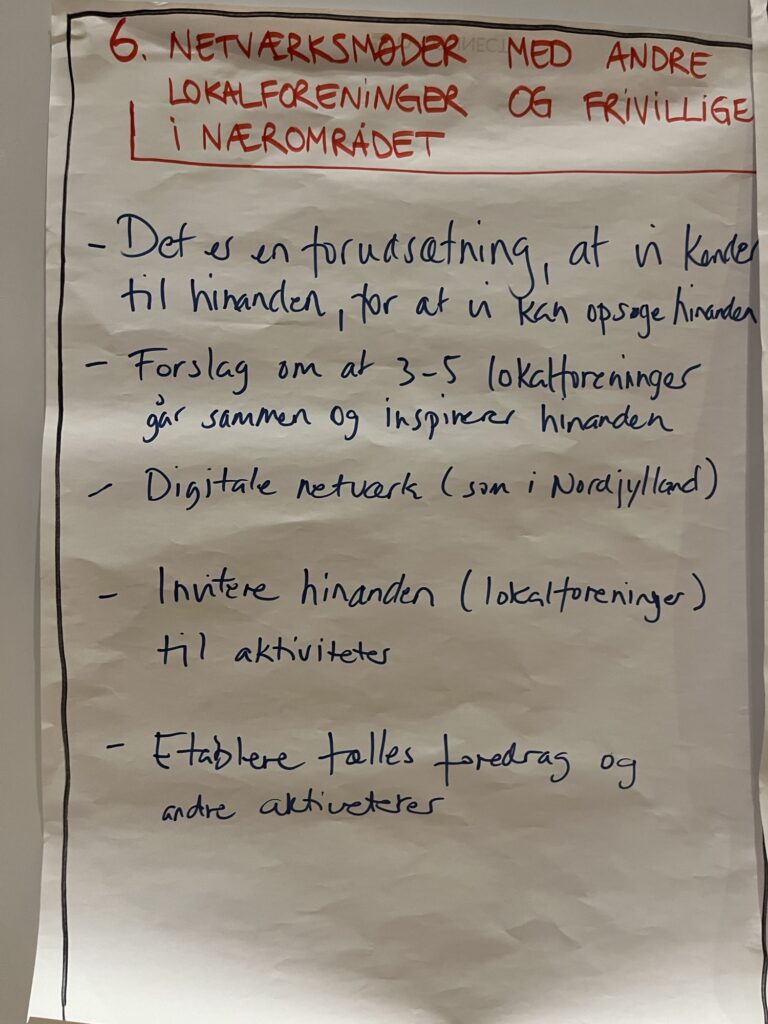 6. NETVÆRKSMØDER MED ANDRE
LOKALFORENINGER OG FRIVILLIGE
I NÆROMRÅDET
- Det er en forudsætning, at vi kender
til hinanden, for at vi kan opsøge hinanden
- Forslag om at 3-5 lokalforeninger
går sammen og inspirerer hinanden
- Digitale netværk (som i Nordjylland)
- Invitere hinanden (lokalforeninger)
til aktiviteter
- Etablere fælles foredrag og
andre aktiveterer